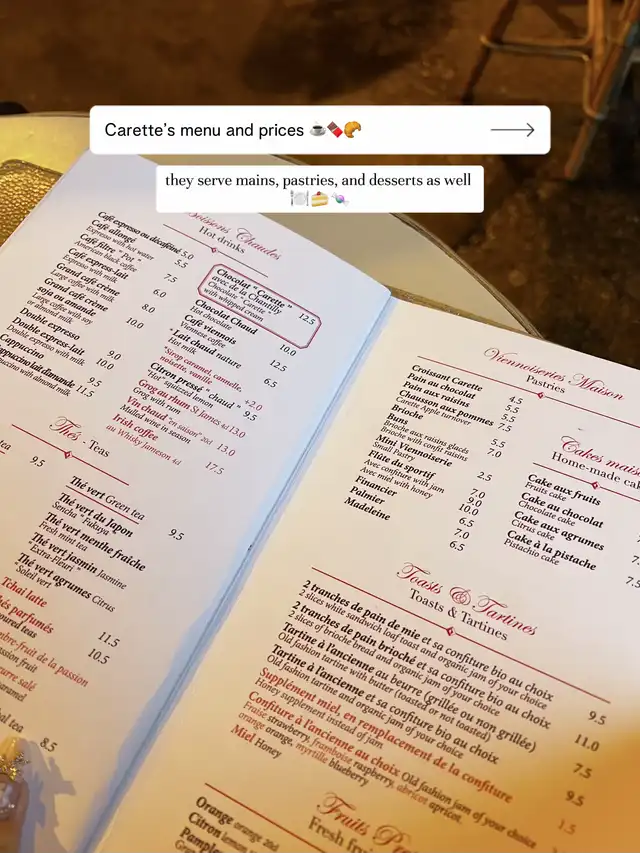 Carette's menu and prices ☕🍫🥐
they serve mains, pastries, and desserts as well
🍽️🍰🍬
Boissons Chaudes
Hot drinks
Café expresso ou décaféiné 5.0
Café allongé 5.5
Espresso with hot water
Café filtre "Pot" 7.5
American black coffee
Café express-lait 6.0
Espresso with milk
Grand café crème 8.0
Large coffee with milk
Grand café crème
soja ou amande 10.0
Large coffee with soy
or almond milk
Double expresso 9.0
Double express-lait 10.0
Double espresso with milk
Cappuccino 9.5
Cappuccino lait d'amande 11.5
Cappuccino with almond milk
Chocolat "Carette" 12.5
avec de la Chantilly
Chocolate "Carette"
with whipped cream
Chocolat Chaud 10.0
Hot chocolate
Café viennois 12.5
Viennese coffee
Lait chaud nature 6.5
Hot milk
"Sirop caramel, cannelle,
noisette, vanille" +2.0
Citron pressé "chaud" 9.5
"Hot" squeezed lemon
Grog au rhum St James 4l 13.0
Grog with rum
Vin chaud "en saison" 20cl 13.0
Mulled wine in season
Irish coffee 17.5
au Whisky Jameson 4cl
Thés - Teas
tea 9.5
Thé vert Green tea
Thé vert du Japon 9.5
Sencha "Fukuya"
Thé vert menthe fraîche
Fresh mint tea
Thé vert jasmin Jasmine
"Extra-Fleuri"
Thé vert agrumes Citrus
"Soleil vert"
Tchai latte 11.5
parfumés 10.5
oured teas
bre-fruit de la passion
ssion fruit
urre salé
aramel
bal tea 8.5
Viennoiseries Maison
Pastries
Croissant Carette 4.5
Pain au chocolat 5.5
Pain aux raisins 5.5
Chausson aux pommes 7.5
Carette Apple turnover
Brioche 5.5
Buns 7.0
Brioche aux raisins glacés
Brioche with confit raisins
Mini Viennoiserie 2.5
Small Pastry
Flûte du sportif 7.0
Avec confiture with jam 9.0
Avec miel with honey 10.0
Financier 6.5
Palmier 7.0
Madeleine 6.5
Cakes mais
Home-made cak
Cake aux fruits
Fruits cake
Cake au chocolat
Chocolate cake
Cake aux agrumes
Citrus cake
Cake à la pistache 7.5
Pistachio cake
Toasts & Tartines
Toasts & Tartines
2 tranches de pain de mie et sa confiture bio au choix 9.5
2 slices white sandwich loaf toast and organic jam of your choice
2 tranches de pain brioché et sa confiture bio au choix 11.0
2 slices of brioche bread and organic jam of your choice
Tartine à l'ancienne au beurre (grillée ou non grillée) 7.5
Old fashion tartine with butter (toasted or not toasted)
Tartine à l'ancienne et sa confiture bio au choix 9.5
Old fashion tartine and organic jam of your choice
Supplément miel, en remplacement de la confiture 1.5
Honey supplement instead of jam
Confiture à l'ancienne au choix Old fashion jam of your choice
Fraise strawberry, framboise raspberry, abricot apricot,
orange orange, myrtille blueberry
Miel Honey
Fruits
Fresh
Orange orange 20cl
Citron lemon